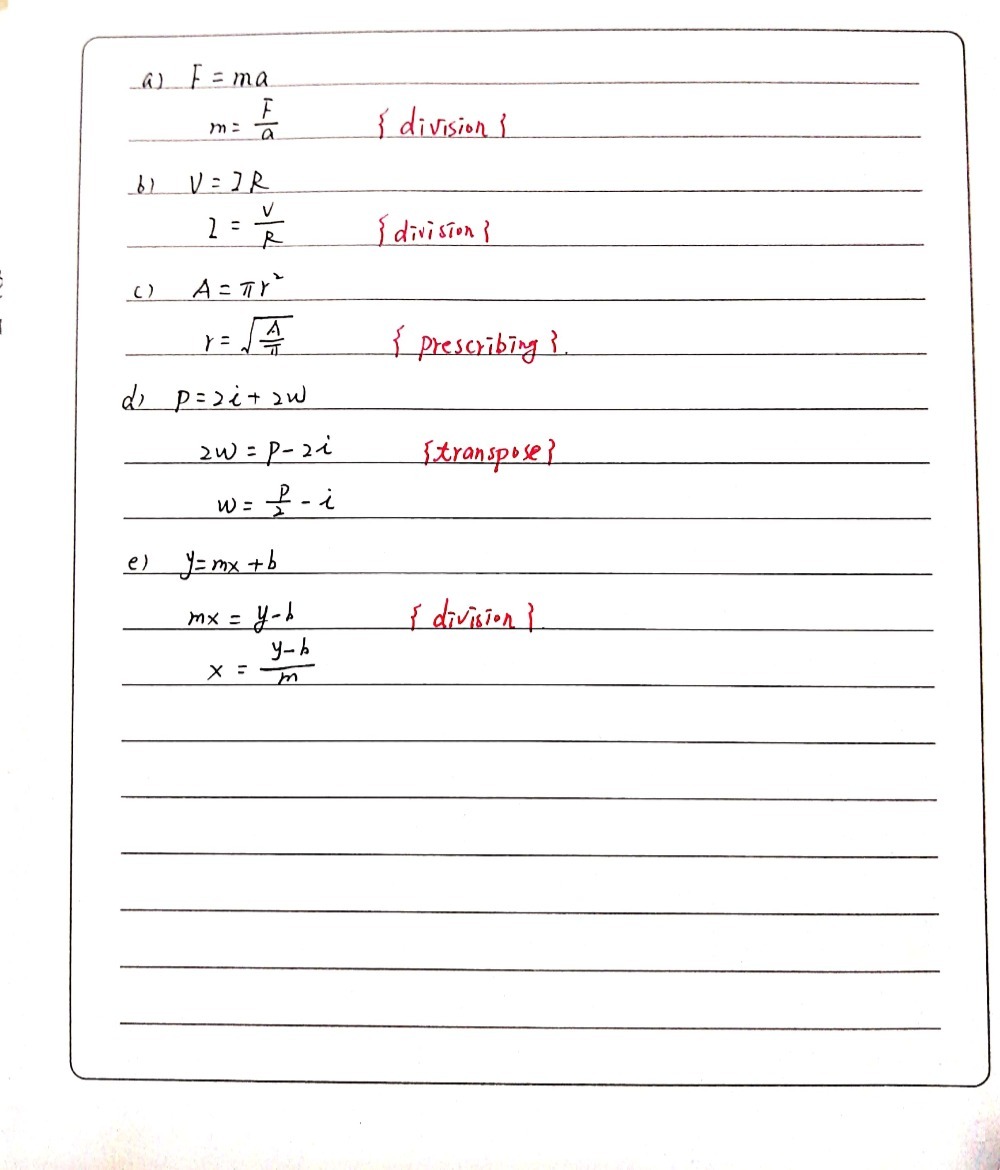 a) F = ma
m = F/a { division }
b) V = IR
I = V/R { division }
c) A = πr²
r = √(A/π) { prescribing }.
d) P = 2i + 2w
2w = P - 2i {transpose}
w = P/2 - i
e) y = mx + b
mx = y - b { division }.
x = (y - b)/m